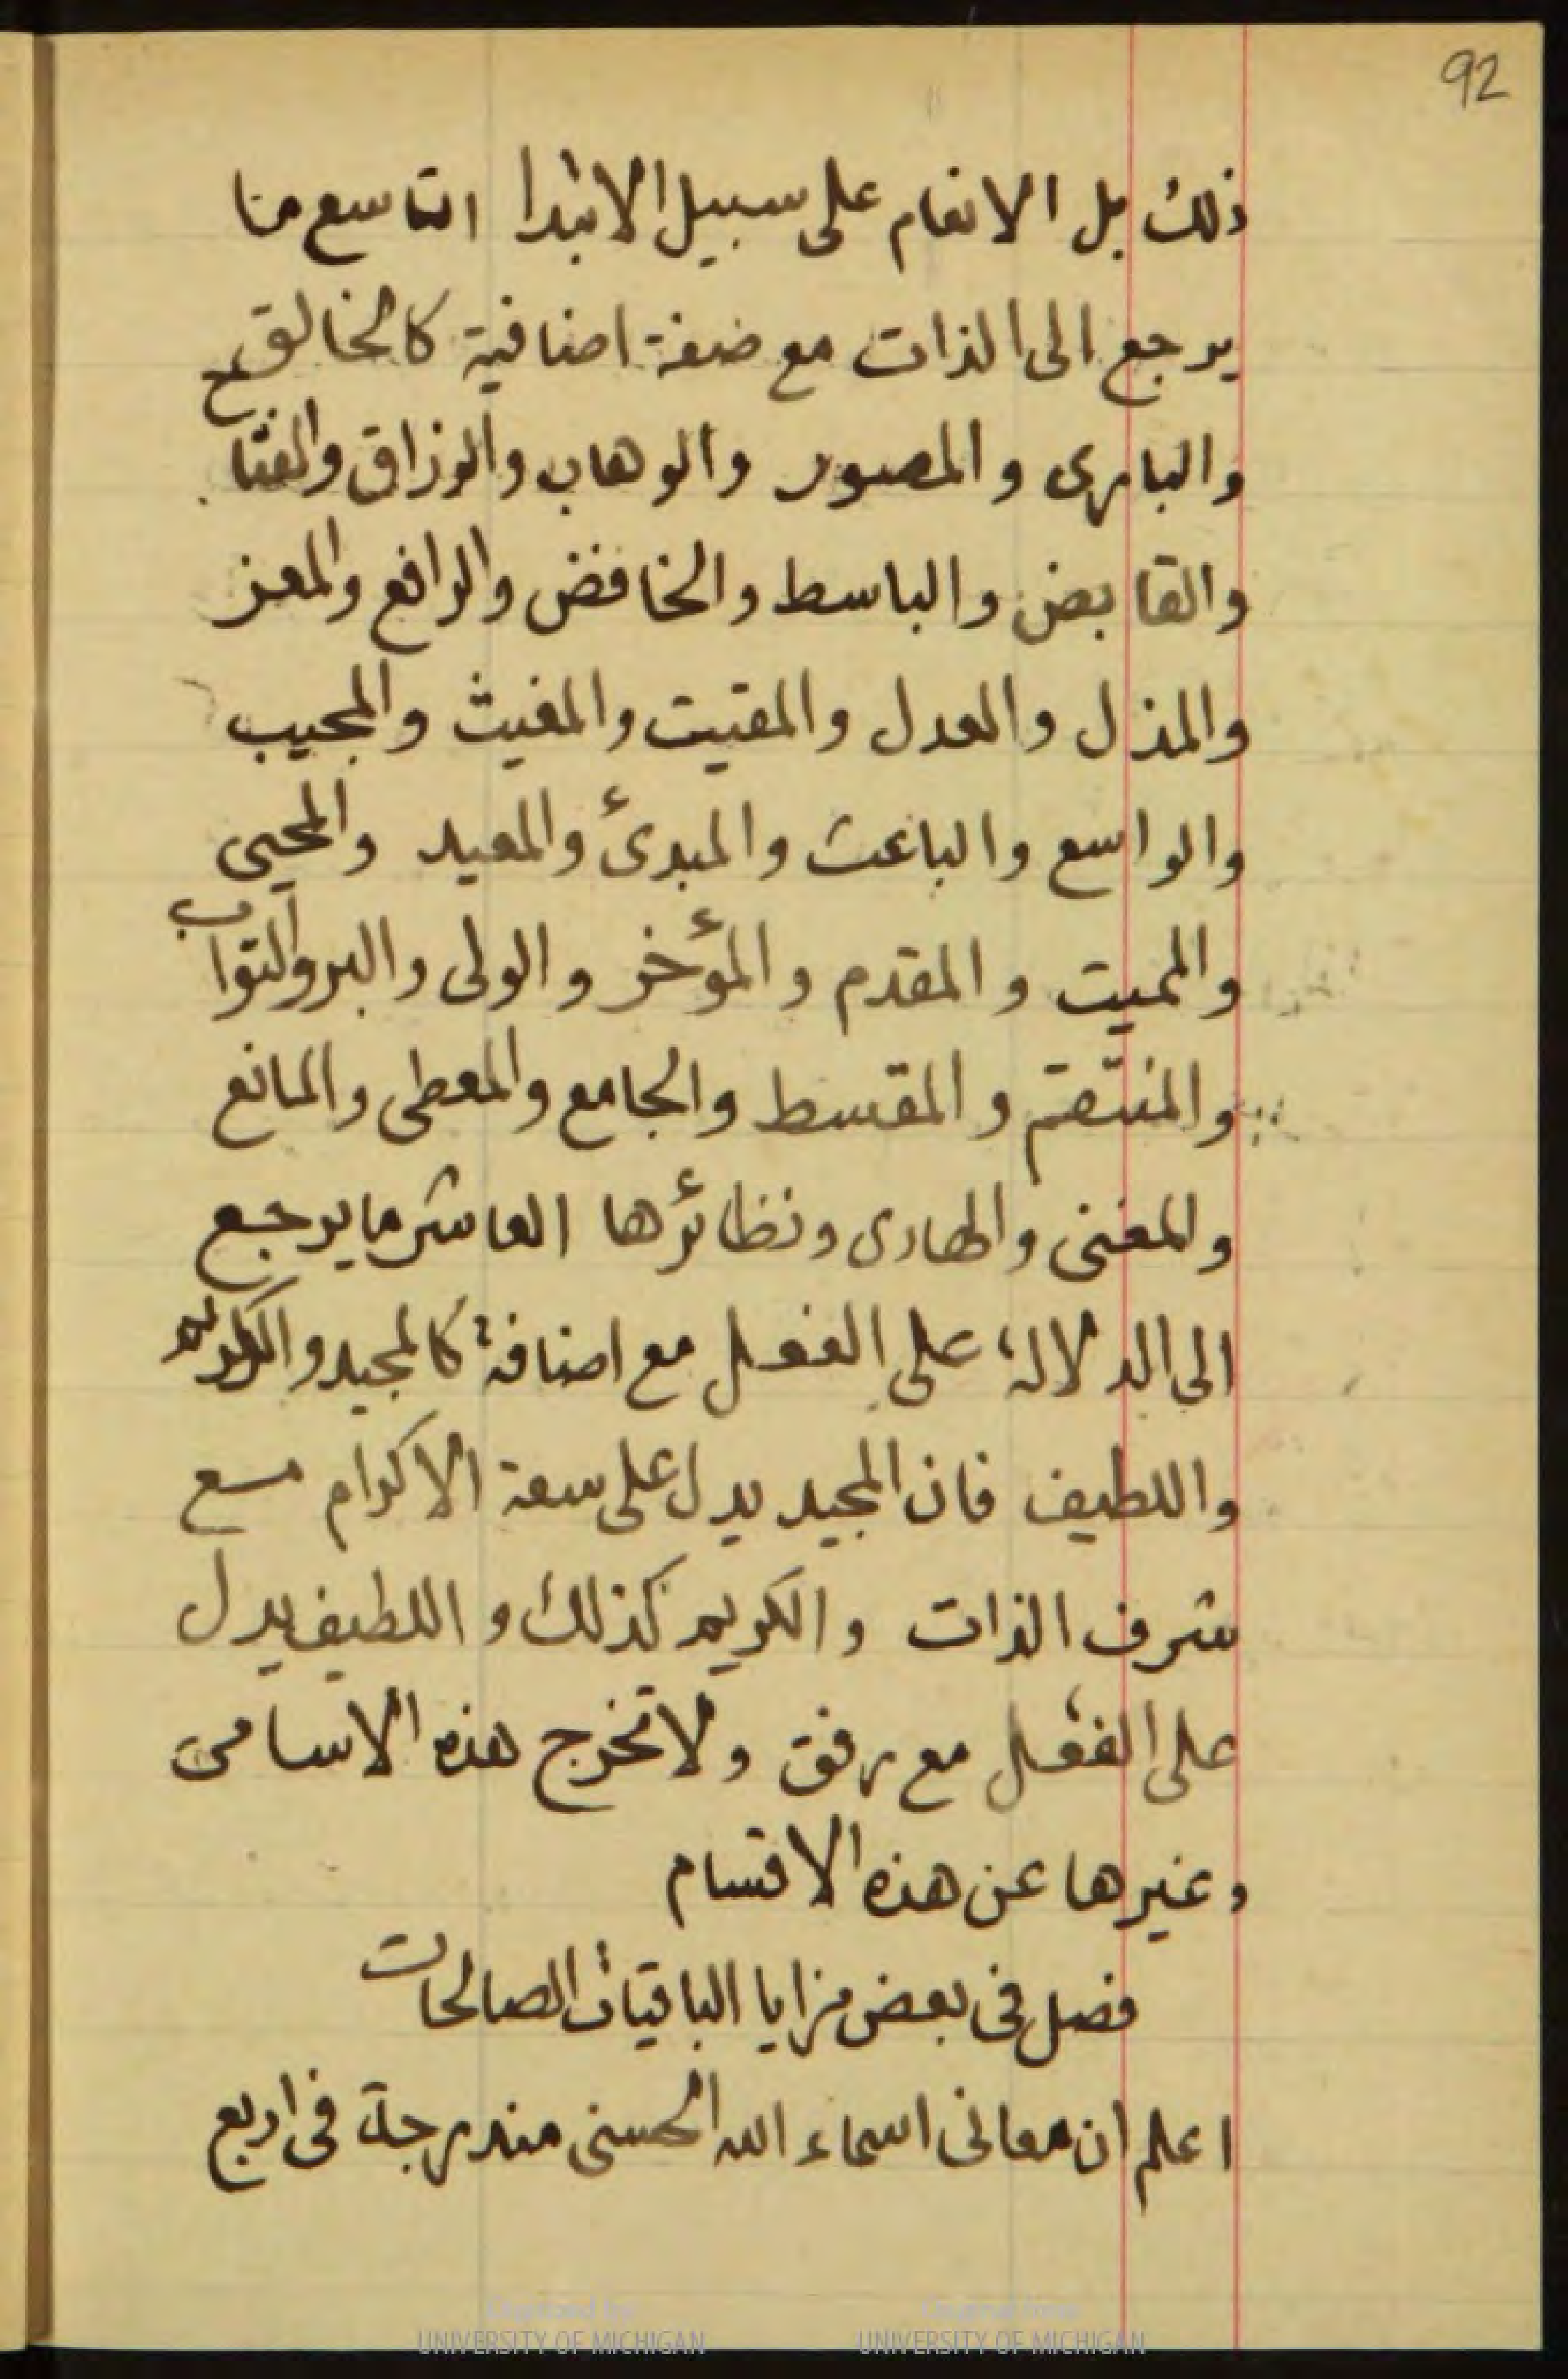 92
ذلك بل الانعام على سبيل الابتدا التاسع منا
يرجع الى الذات مع صفة اضافية كالخالق
والبارى والمصور والوهاب والرزاق والفتاح
والقابض والباسط والخافض والرافع والمعز
والمذل والعدل والمقيت والمغيث والمجيب
والواسع والباعث والمبدئ والمعيد والمحيى
والمميت والمقدم والمؤخر والولى والبر والتواب
والمنتقم والمقسط والجامع والمعطى والمانع
والمغنى والهادى ونظائرها العاشر ما يرجع
الى الدلالة على الفعل مع اضافة كالمجيد والكريم
واللطيف فان المجيد يدل على سعة الاكرام مع
شرف الذات والكريم كذلك واللطيف يدل
على الفعل مع رفق ولا تخرج هذه الاسامى
وغيرها عن هذه الاقسام
فصل فى بعض مزايا الباقيات الصالحات
اعلم ان معانى اسماء الله الحسنى مندرجة فى اربع
Digitized by
UNIVERSITY OF MICHIGAN
Original from
UNIVERSITY OF MICHIGAN